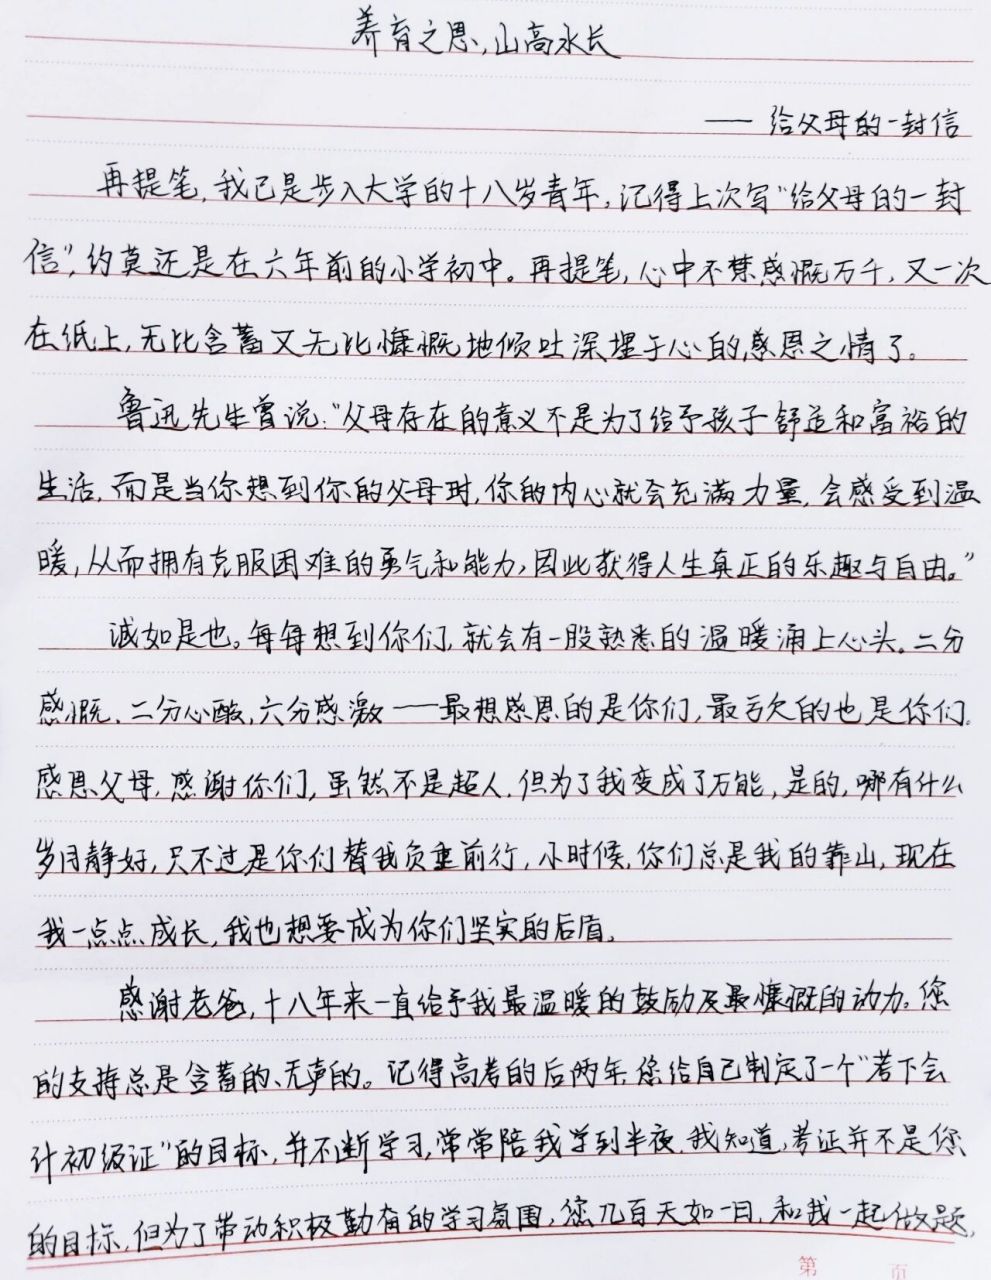 养育之恩,山高水长
—— 给父母的一封信
再提笔,我已是步入大学的十八岁青年,记得上次写“给父母的一封
信”,约莫还是在六年前的小学初中。再提笔,心中不禁感慨万千,又一次
在纸上,无比含蓄又无比慷慨地倾吐深埋于心的感恩之情了。
鲁迅先生曾说:“父母存在的意义不是为了给予孩子舒适和富裕的
生活,而是当你想到你的父母时,你的内心就会充满力量,会感受到温
暖,从而拥有克服困难的勇气和能力,因此获得人生真正的乐趣与自由。”
诚如是也。每每想到你们,就会有一股熟悉的温暖涌上心头。二分
感慨,二分心酸,六分感激——最想感恩的是你们,最亏欠的也是你们。
感恩父母,感谢你们,虽然不是超人,但为了我变成了万能,是的,哪有什么
岁月静好,只不过是你们替我负重前行,小时候,你们总是我的靠山,现在
我一点点成长,我也想要成为你们坚实的后盾。
感谢老爸,十八年来一直给予我最温暖的鼓励及最慷慨的动力。您
的支持总是含蓄的、无声的。记得高考的后两年,您给自己制定了一个“考下会
计初级证”的目标,并不断学习,常常陪我学到半夜,我知道,考证并不是您
的目标,但为了带动积极勤奋的学习氛围,您几百天如一日,和我一起做题,
第 页